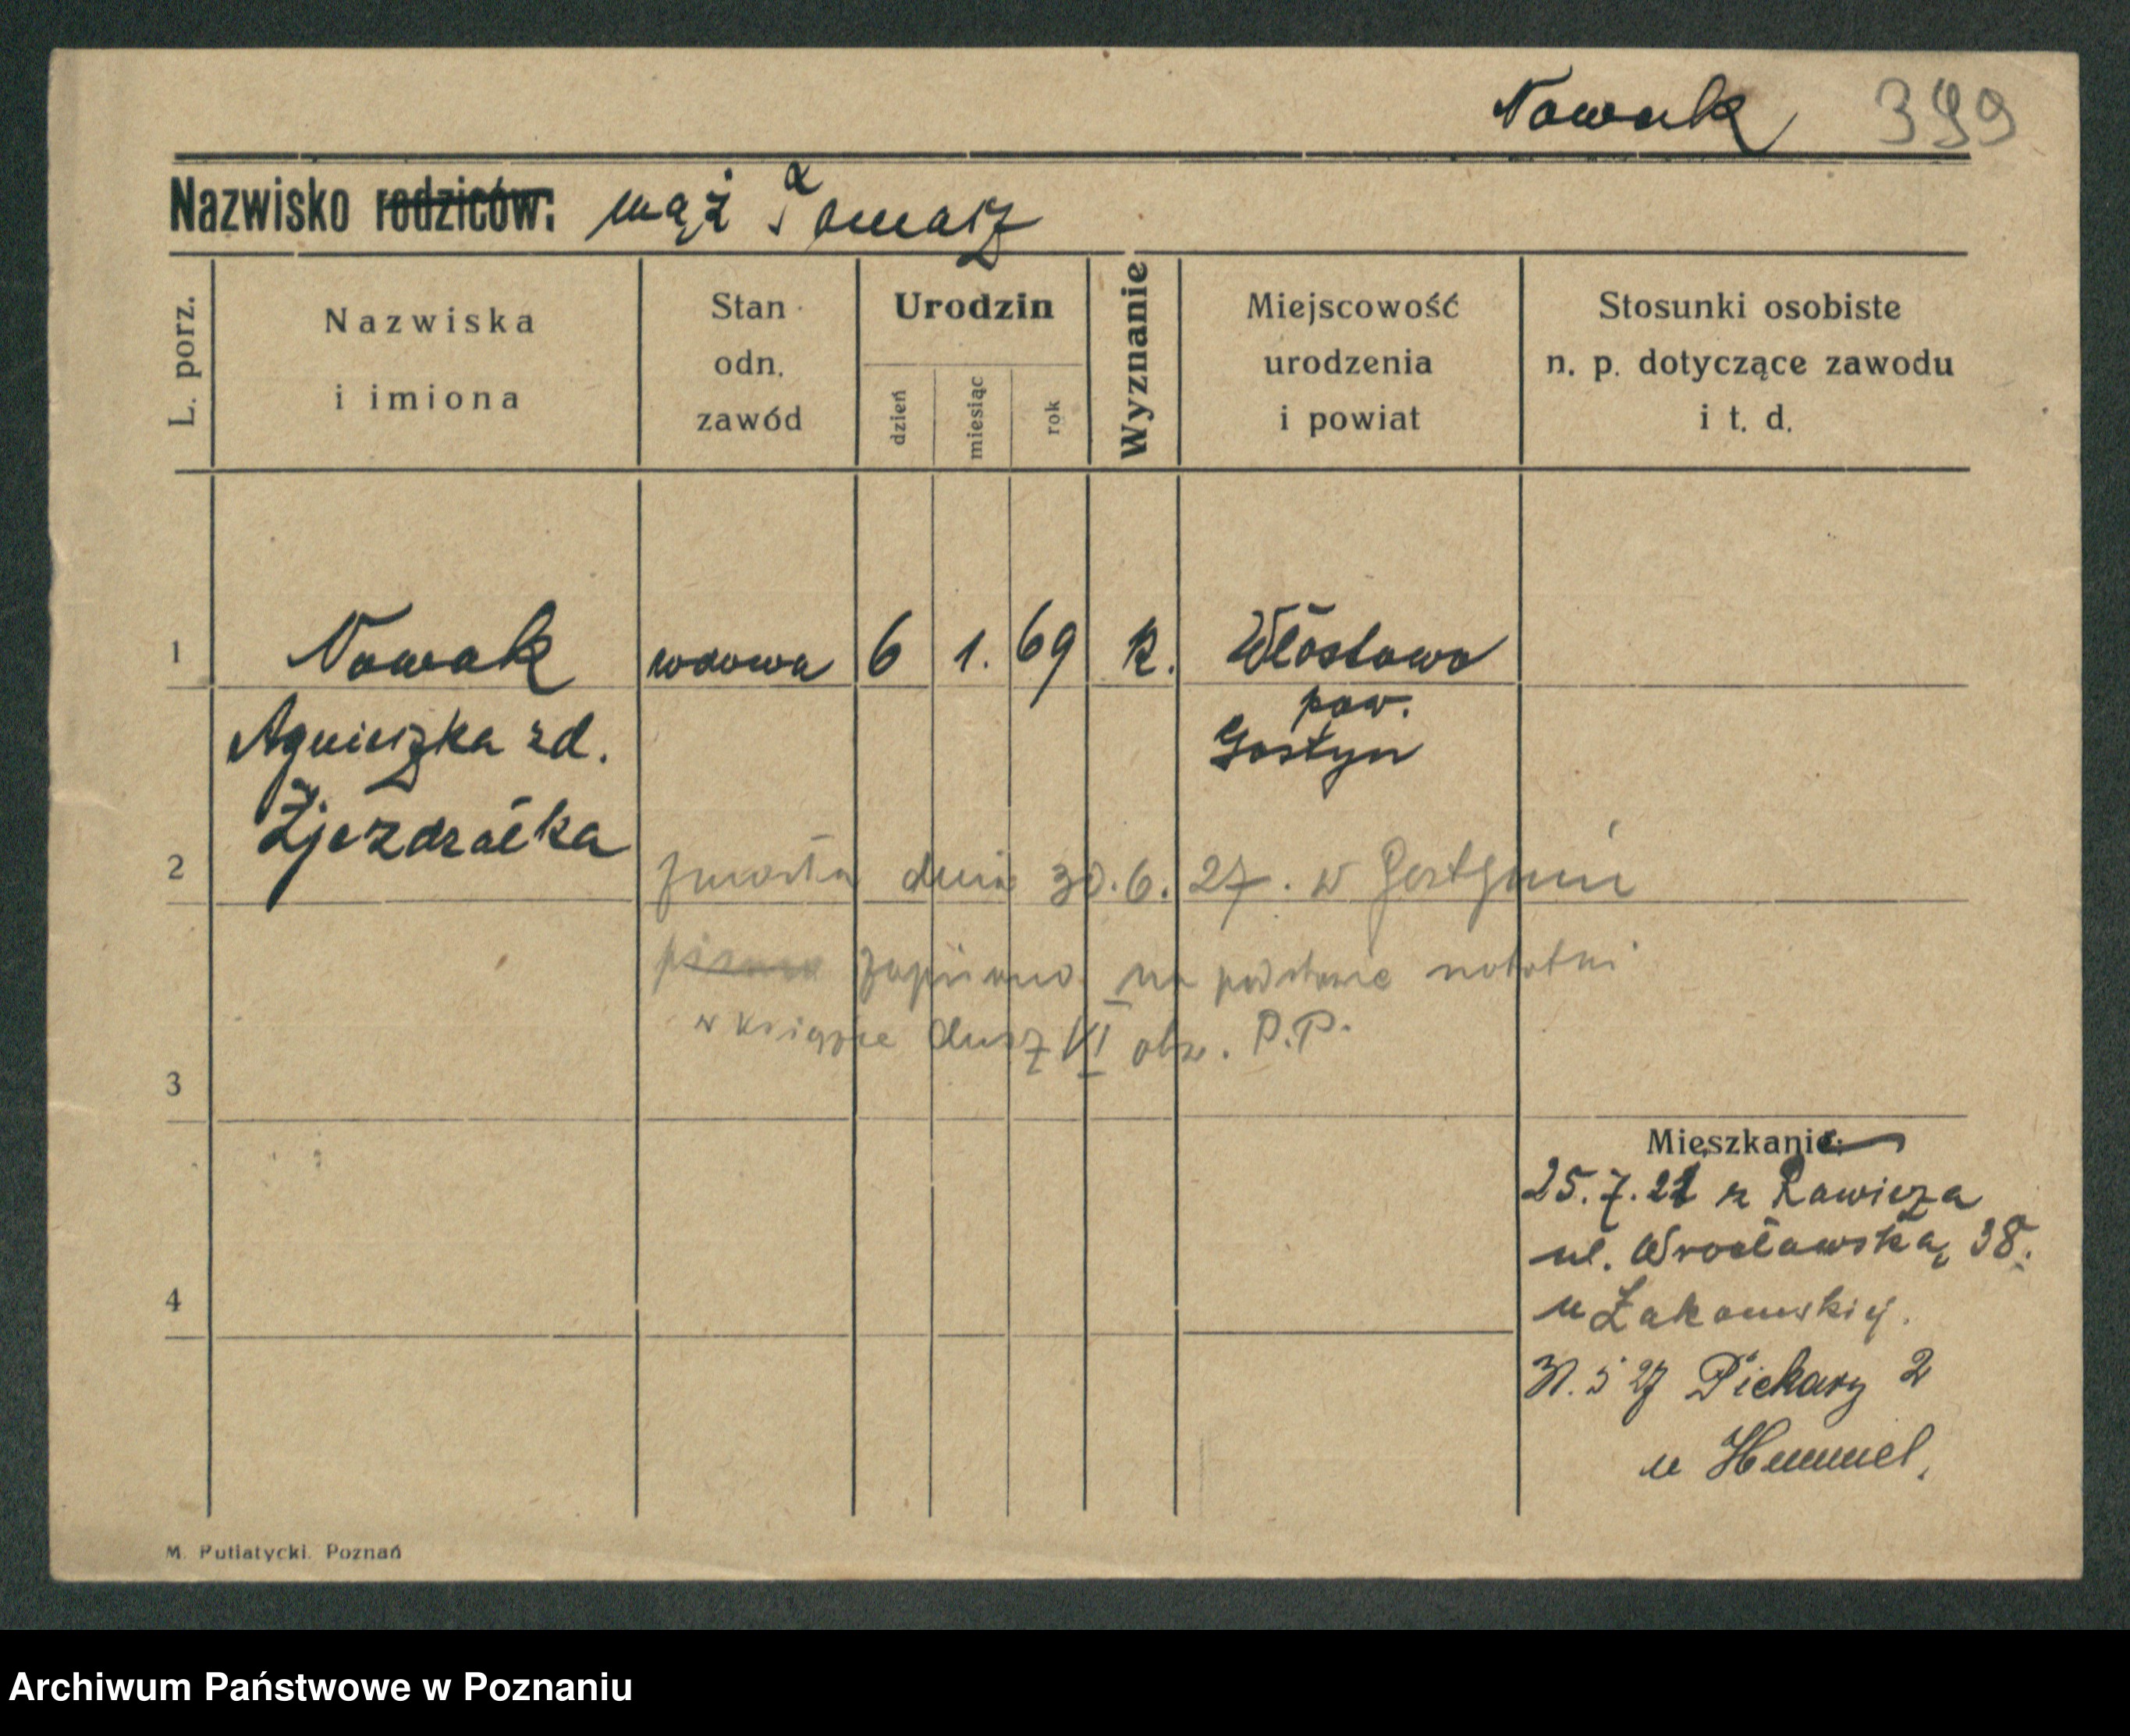 Nowak 399
Nazwisko rodziców: mąż Tomasz
L. porz.
Nazwiska
i imiona
Stan
odn.
zawód
Urodzin
dzień
miesiąc
rok
Wyznanie
Miejscowość
urodzenia
i powiat
Stosunki osobiste
n. p. dotyczące zawodu
i t. d.
1 Nowak wdowa 6 1. 69 k. Włostowo
pow.
Agnieszka zd. Gostyn
2
zmarła dnia 30.6.27. w Gostyniu
zapisano na podstawie notatki
w książce dusz VI obw. P.P.
3
Mieszkanie:
25.7.22 z Rawicza
ul. Wrocławska, 38.
4
u Żakowskiej.
31.5 27 Piekary 2
u Hummel.
M. Putiatycki. Poznań
Archiwum Państwowe w Poznaniu